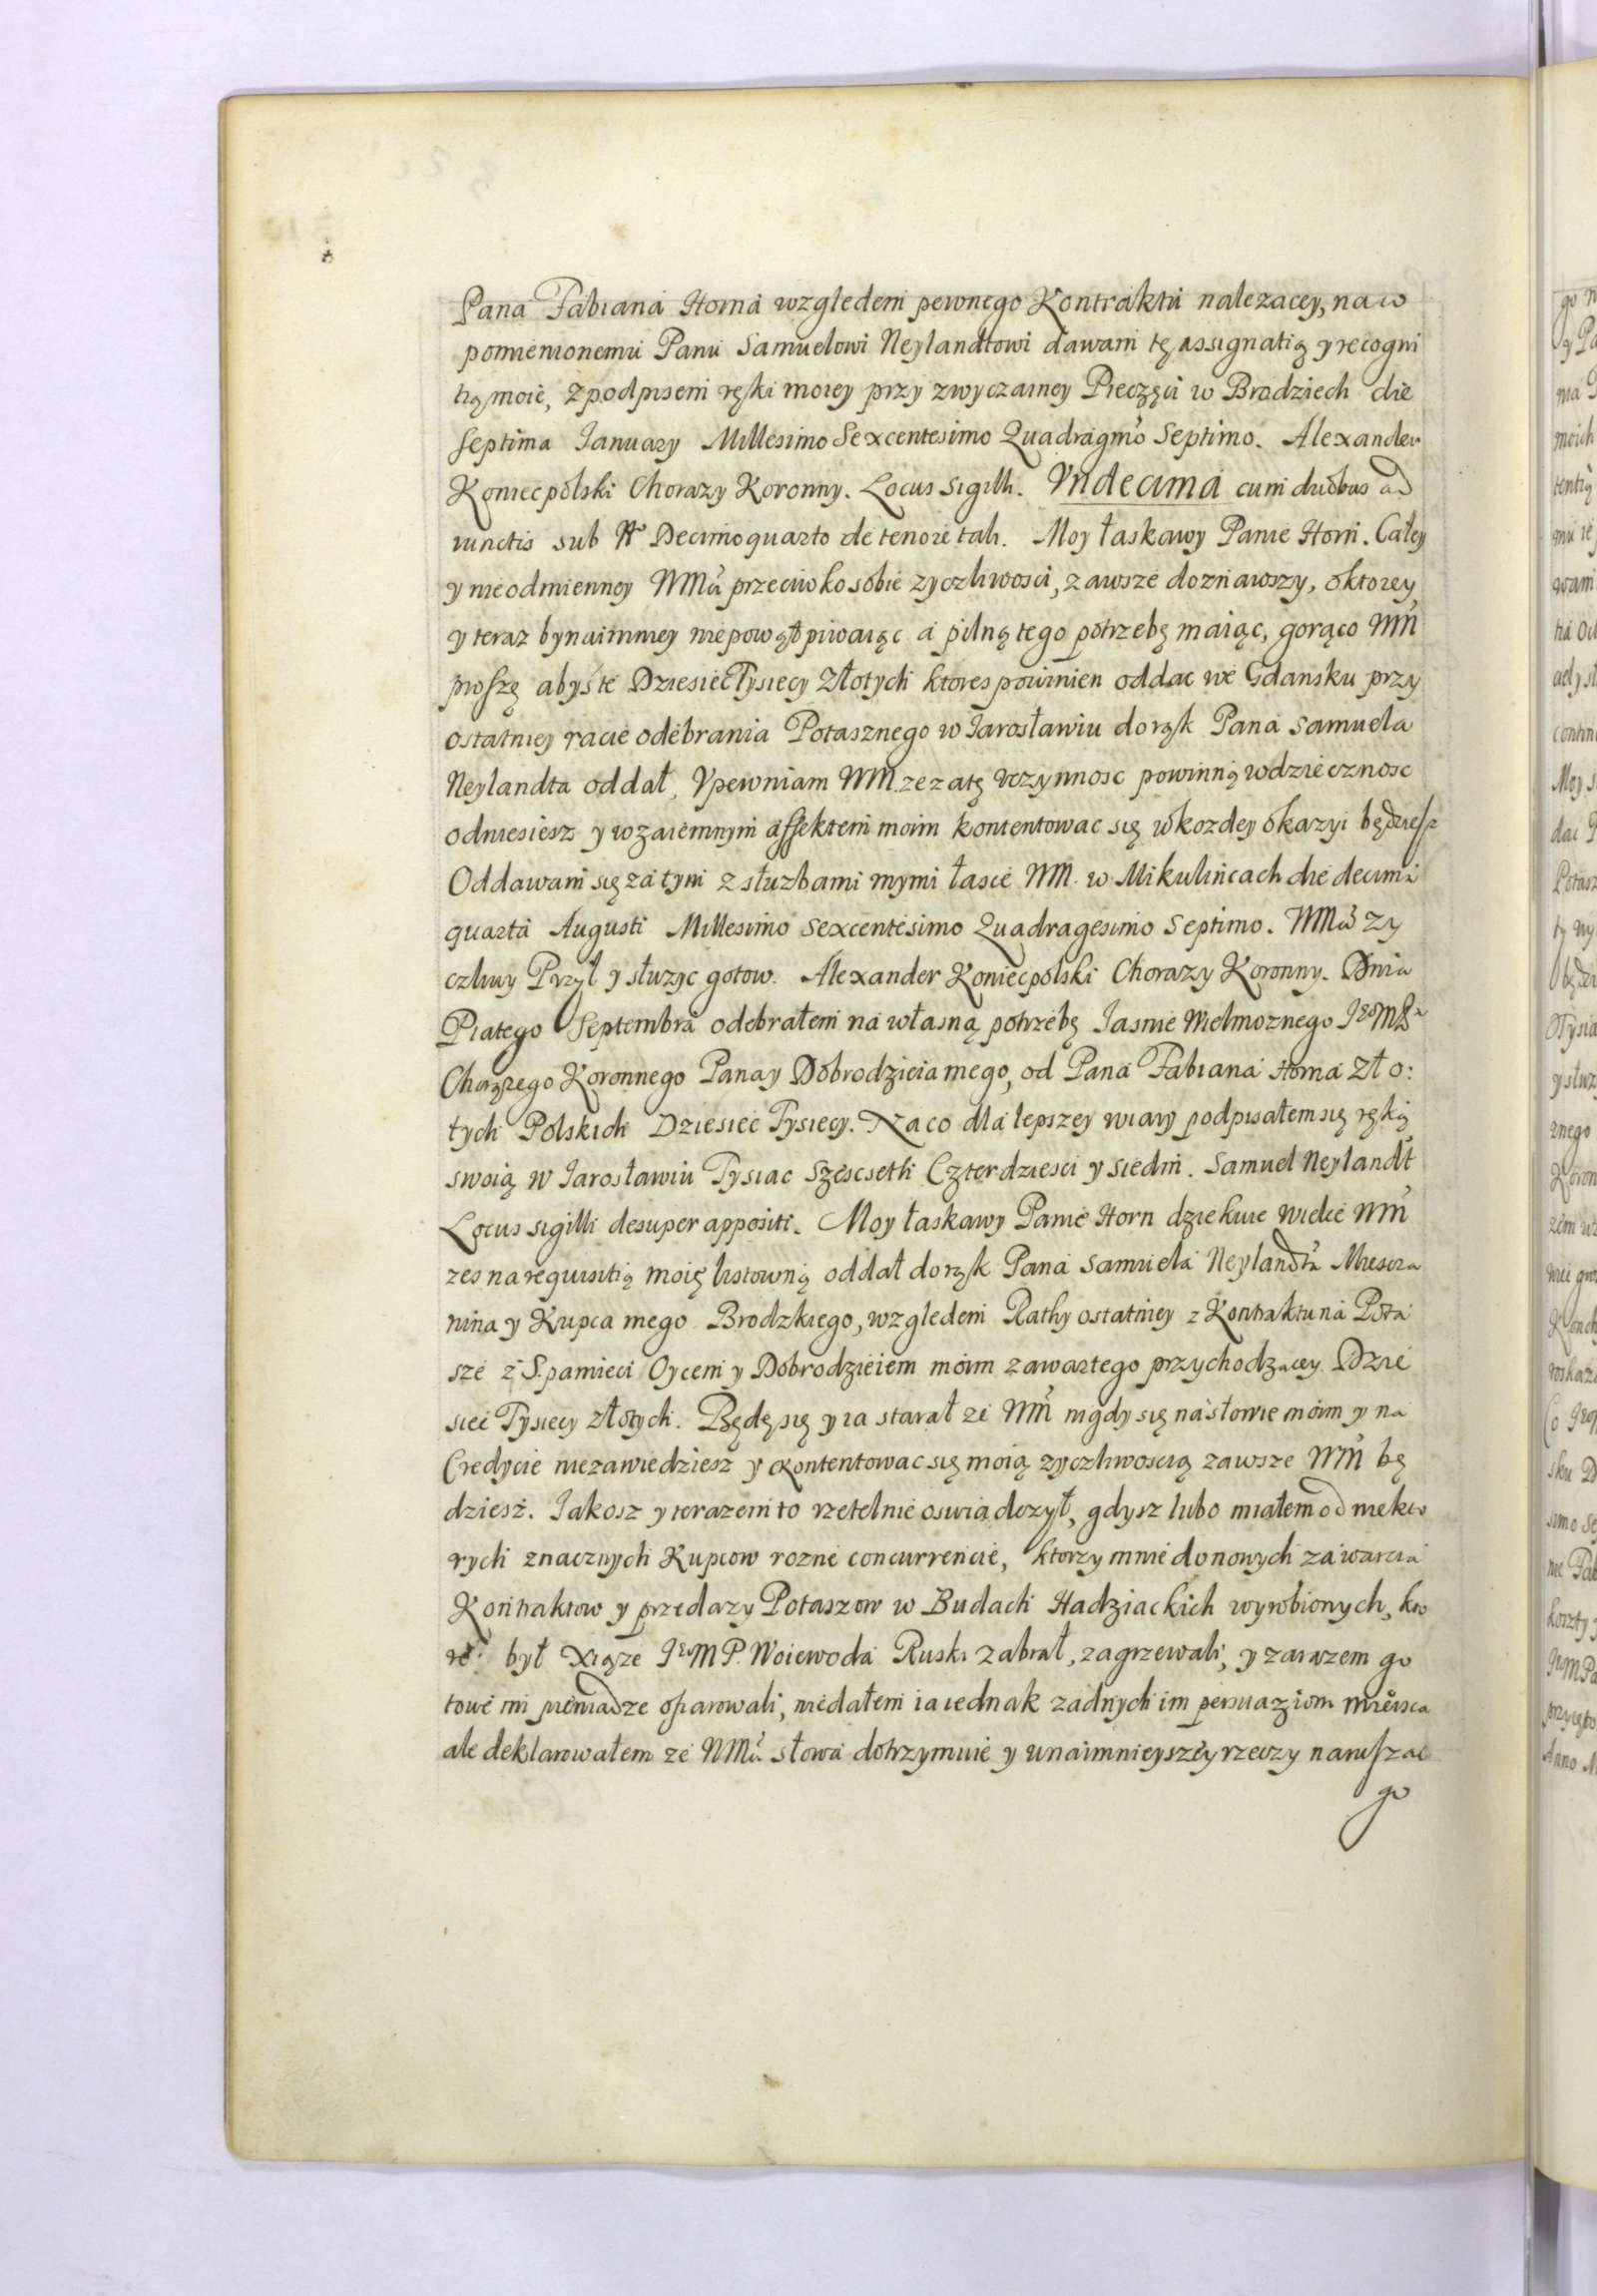 Pana Fabiana Horna względem pewnego Kontraktu nalezacey, na w
pomienionemu Panu Samuelowi Neylandtowi dawam tę assignatią y recogni
tią moie, z podpisem ręki moiey przy zwyczainey Pieczęci w Brodziech die
septima Ianuary Millesimo Sexcentesimo Quadragmo Septimo. Alexander
Koniecpolski Chorazy Koronny. Locus Sigilli. Vndecima cum duobus ad
iunctis sub No Decimoquarto de tenore tali. Moy łaskawy Panie Horn. Całey
y nieodmienney WMci przeciwko sobie zyczliwosci, zawsze doznawszy, o ktorey
y teraz bynaimniey niepowątpiwaiąc a pilną tego potrzebę maiąc, gorąco WM
proszę abyś te Dziesiec Tysiecy Złotych ktores powinien oddac we Gdansku przy
ostatniey racie odebrania Potasznego w Iarosławiu do rąk Pana Samuela
Neylandta oddał, Vpewniam WM. ze za tę vczynnosc powinną wdziecznosc
odniesiesz y wzaiemnym affektem moim kontentowac się w kozdey okazyi będziesz
Oddawam się za tym z słuzbami mymi łasce WM. w Mikulincach die decima
quarta Augusti Millesimo Sexcentesimo Quadragesimo Septimo. WMci zy
czliwy Przyl y słuzyc gotow. Alexander Koniecpolski Chorazy Koronny. Dnia
Piatego Septembra odebrałem na własną potrzebę Iasnie Wielmoznego IeoMPa
Chorązego Koronnego Pana y Dobrodzieia mego, od Pana Fabiana Horna Zło:
tych Polskich Dziesiec Tysiecy. Na co dla lepszey wiary podpisałem się ręką
swoią w Iarosławiu Tysiac Szescseth Czterdziesci y siedm. Samuel Neylandt
Locus sigilli desuper appositi. Moy łaskawy Panie Horn dziekuie wielce WM
zes na requisitią moię listowną oddał do rąk Pana Samuela Neylandta Miescza
nina y Kupca mego Brodzkiego, względem Rathy ostatniey z Kontraktu na Pota
sze z S. pamieci Oycem y Dobrodzieiem moim zawartego przychodzacey Dzie
siec Tysiecy złotych. Będę się y ia starał ze WM nigdy się na słowie moim y na
Credycie niezawiedziesz y kontentowac się moią zyczliwoscią zawsze WM bę
dziesz. Iakosz y terazem to rzetelnie oswiadczył, gdysz lubo miałem od niekto
rych znacznych Kupcow rozne concurrencie, ktorzy mnie do nowych zawarcia
Kontraktow y przedazy Potaszow w Budach Hadziackich wyrobionych, kto
re był Xiąze IeoM P. Woiewoda Ruski zabrał, zagrzewali, y zarazem go
towe mi pieniadze ofiarowali, niedałem ia iednak zadnych im persuaziom mieisca
ale deklarowałem ze WMci słowa dotrzymuie y w naimnieyszey rzeczy naruszac
go